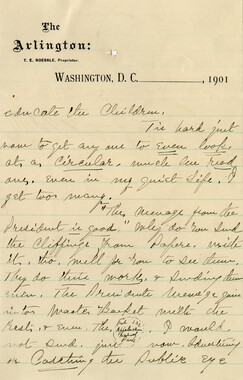 The
Arlington:
T. E. ROESSLE, Proprietor.
WASHINGTON, D. C. 1901
educate the Children.
Tis hard just
now to get any one to even look
at a Circular, much less read
one. Even in my quiet life, I
get too many.
"The message from the
President is good" Why do you send
the Clippings from Papers. write
it, tho. well for you to see them.
They do their work, & sending them
even, The Presidents message goes
into Waste Basket with the
Rest, & Even the . I would
not send just now. Advertising
or Catching the Public Eye